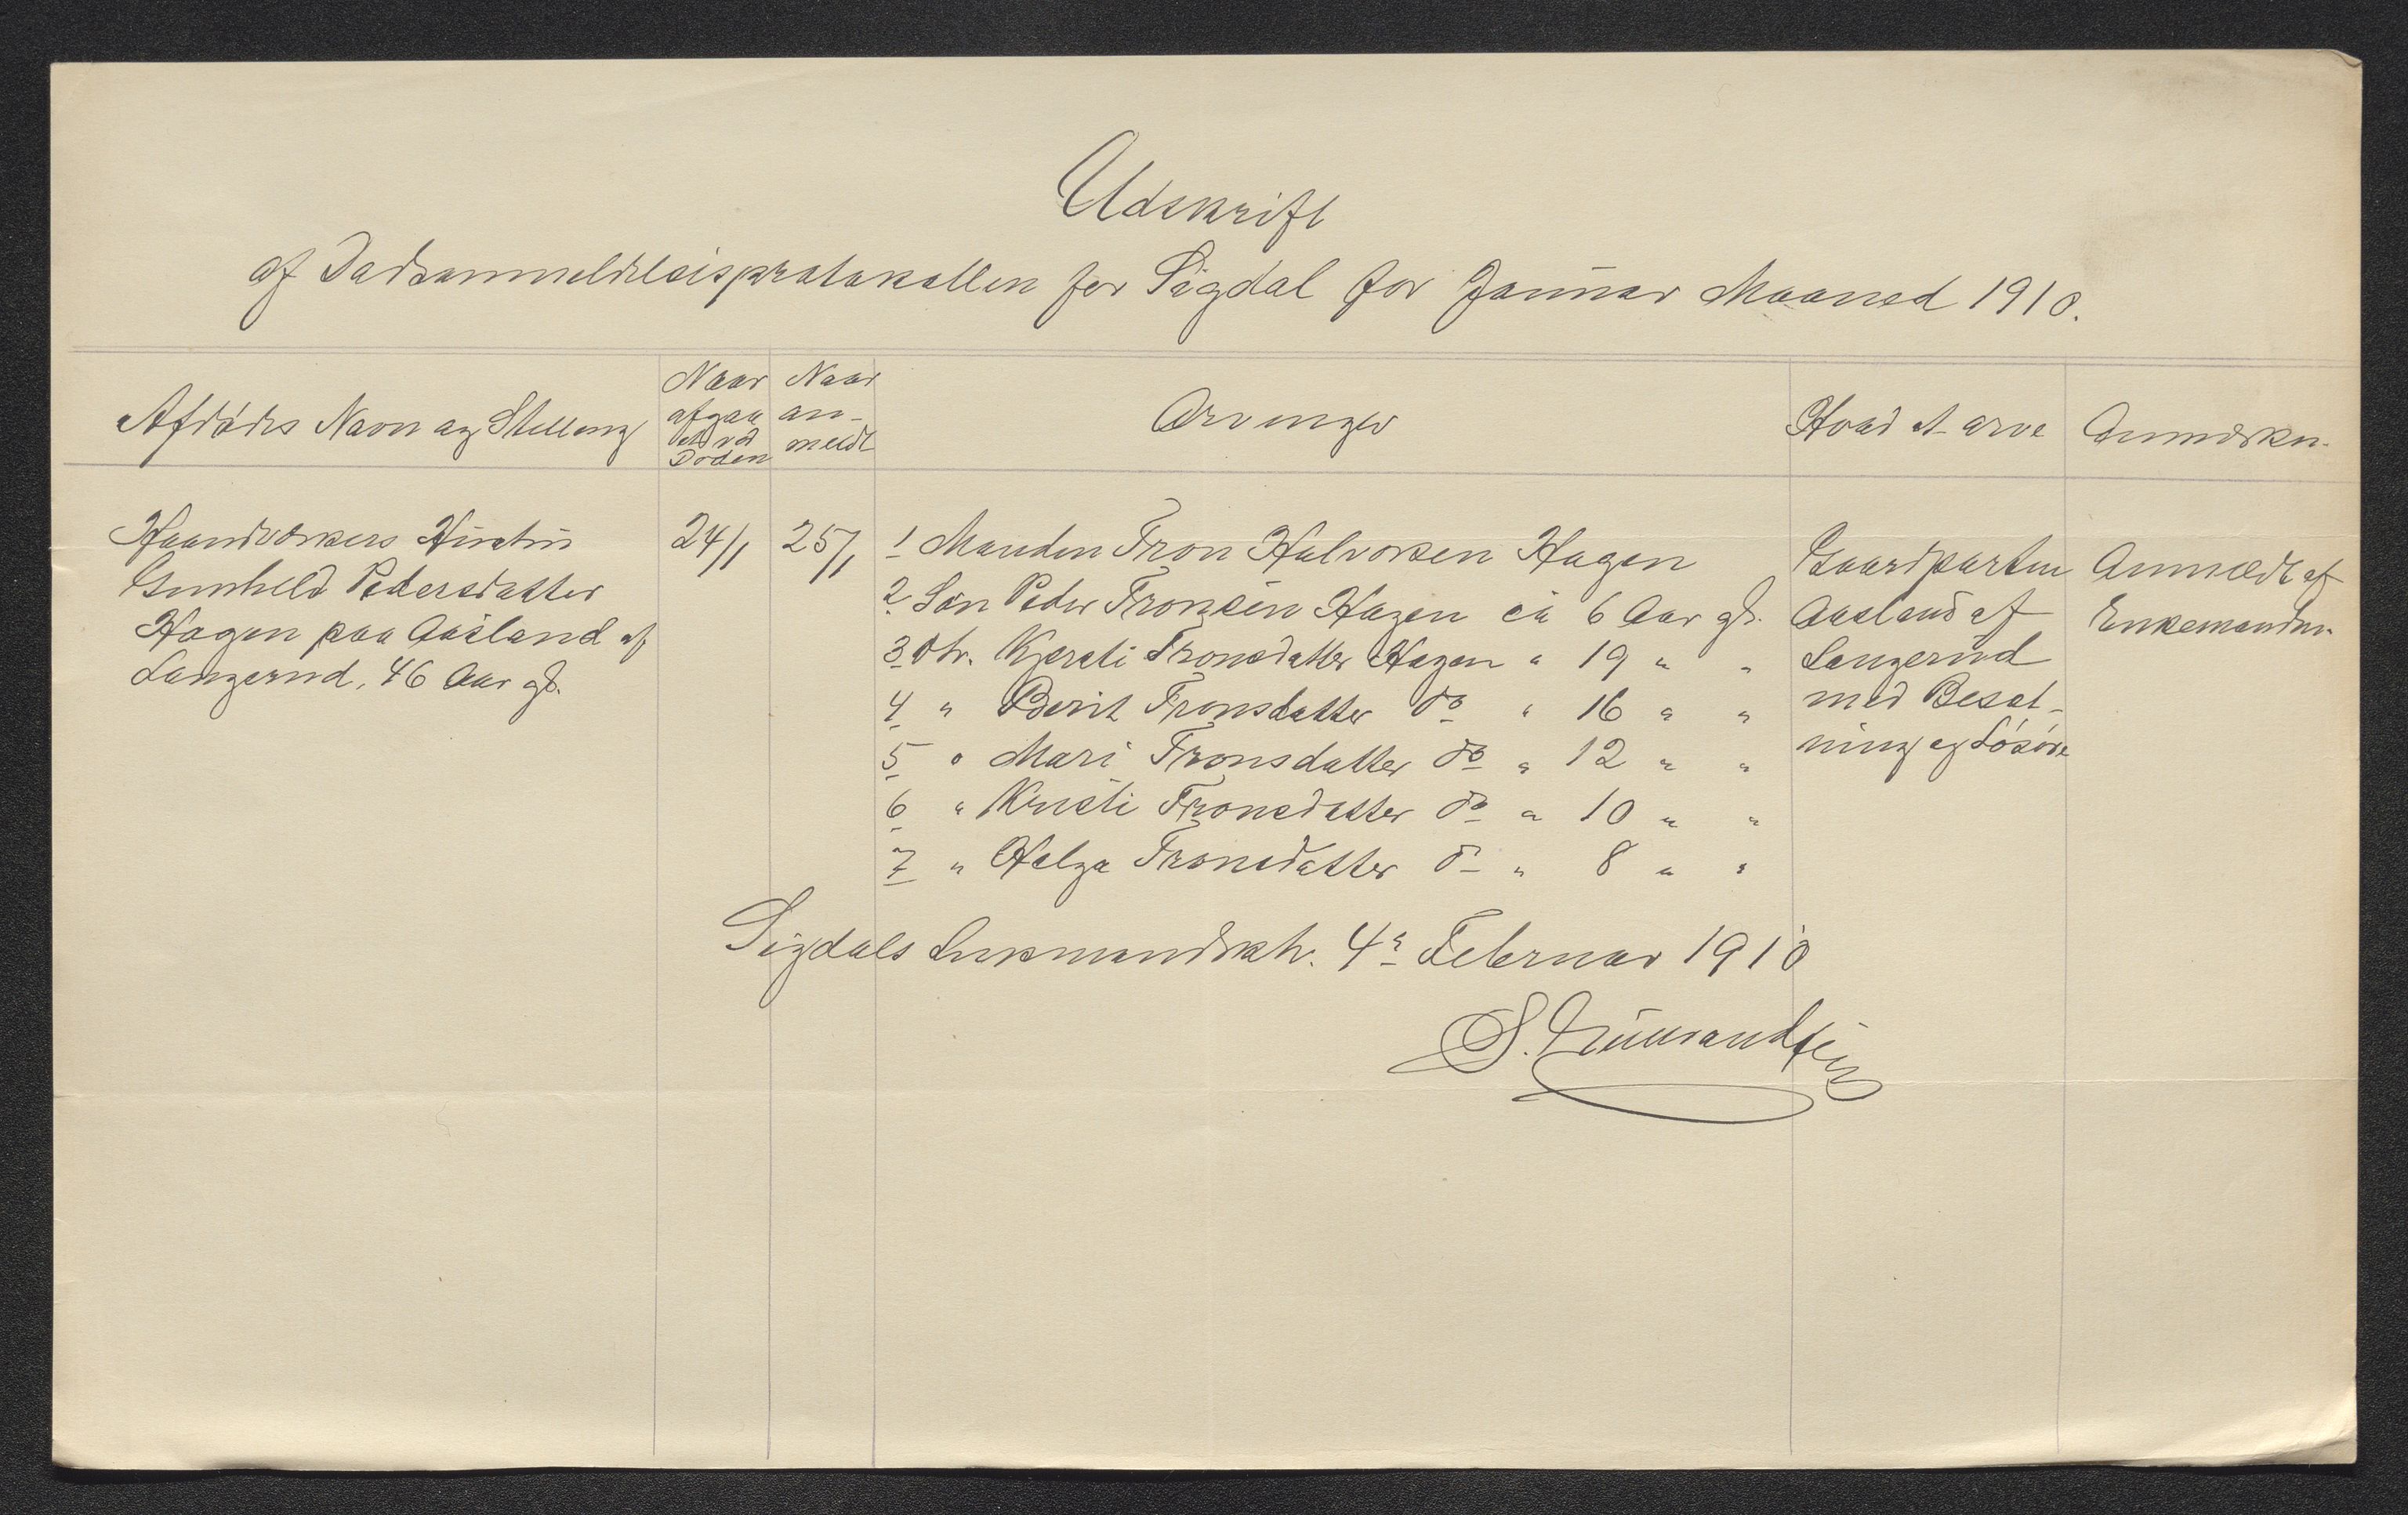 Udskrift
af Dødsanmeldelsesprotokollen for Sigdal for Januar Maaned 1910.
Afdødes Navn og Stilling
Naar afgaaet ved Døden
Naar anmeldt
Arvinger
Hvad at arve
Anmærkn.
Haandværkers Hustru
Gunhild Pedersdatter
Hagen paa Aasland af
Langerud, 46 Aar gl.
24/1
25/1
1 Manden Tron Halvorsen Hagen
2 Søn Peder Tronsen Hagen ca 6 Aar gl.
3 Dtr. Kjersti Tronsdatter Hagen " 19 " "
4 " Berit Tronsdatter do " 16 " "
5 " Mari Tronsdatter do " 12 " "
6 " Kristi Tronsdatter do " 10 " "
7 " Helga Tronsdatter do " 8 " "
Gaardparten
Aasland af
Langerud
med Besæt-
ning og Løsøre
Anmeldt af
Enkemanden
Sigdals Lensmandsktr. 4de Februar 1910
S.